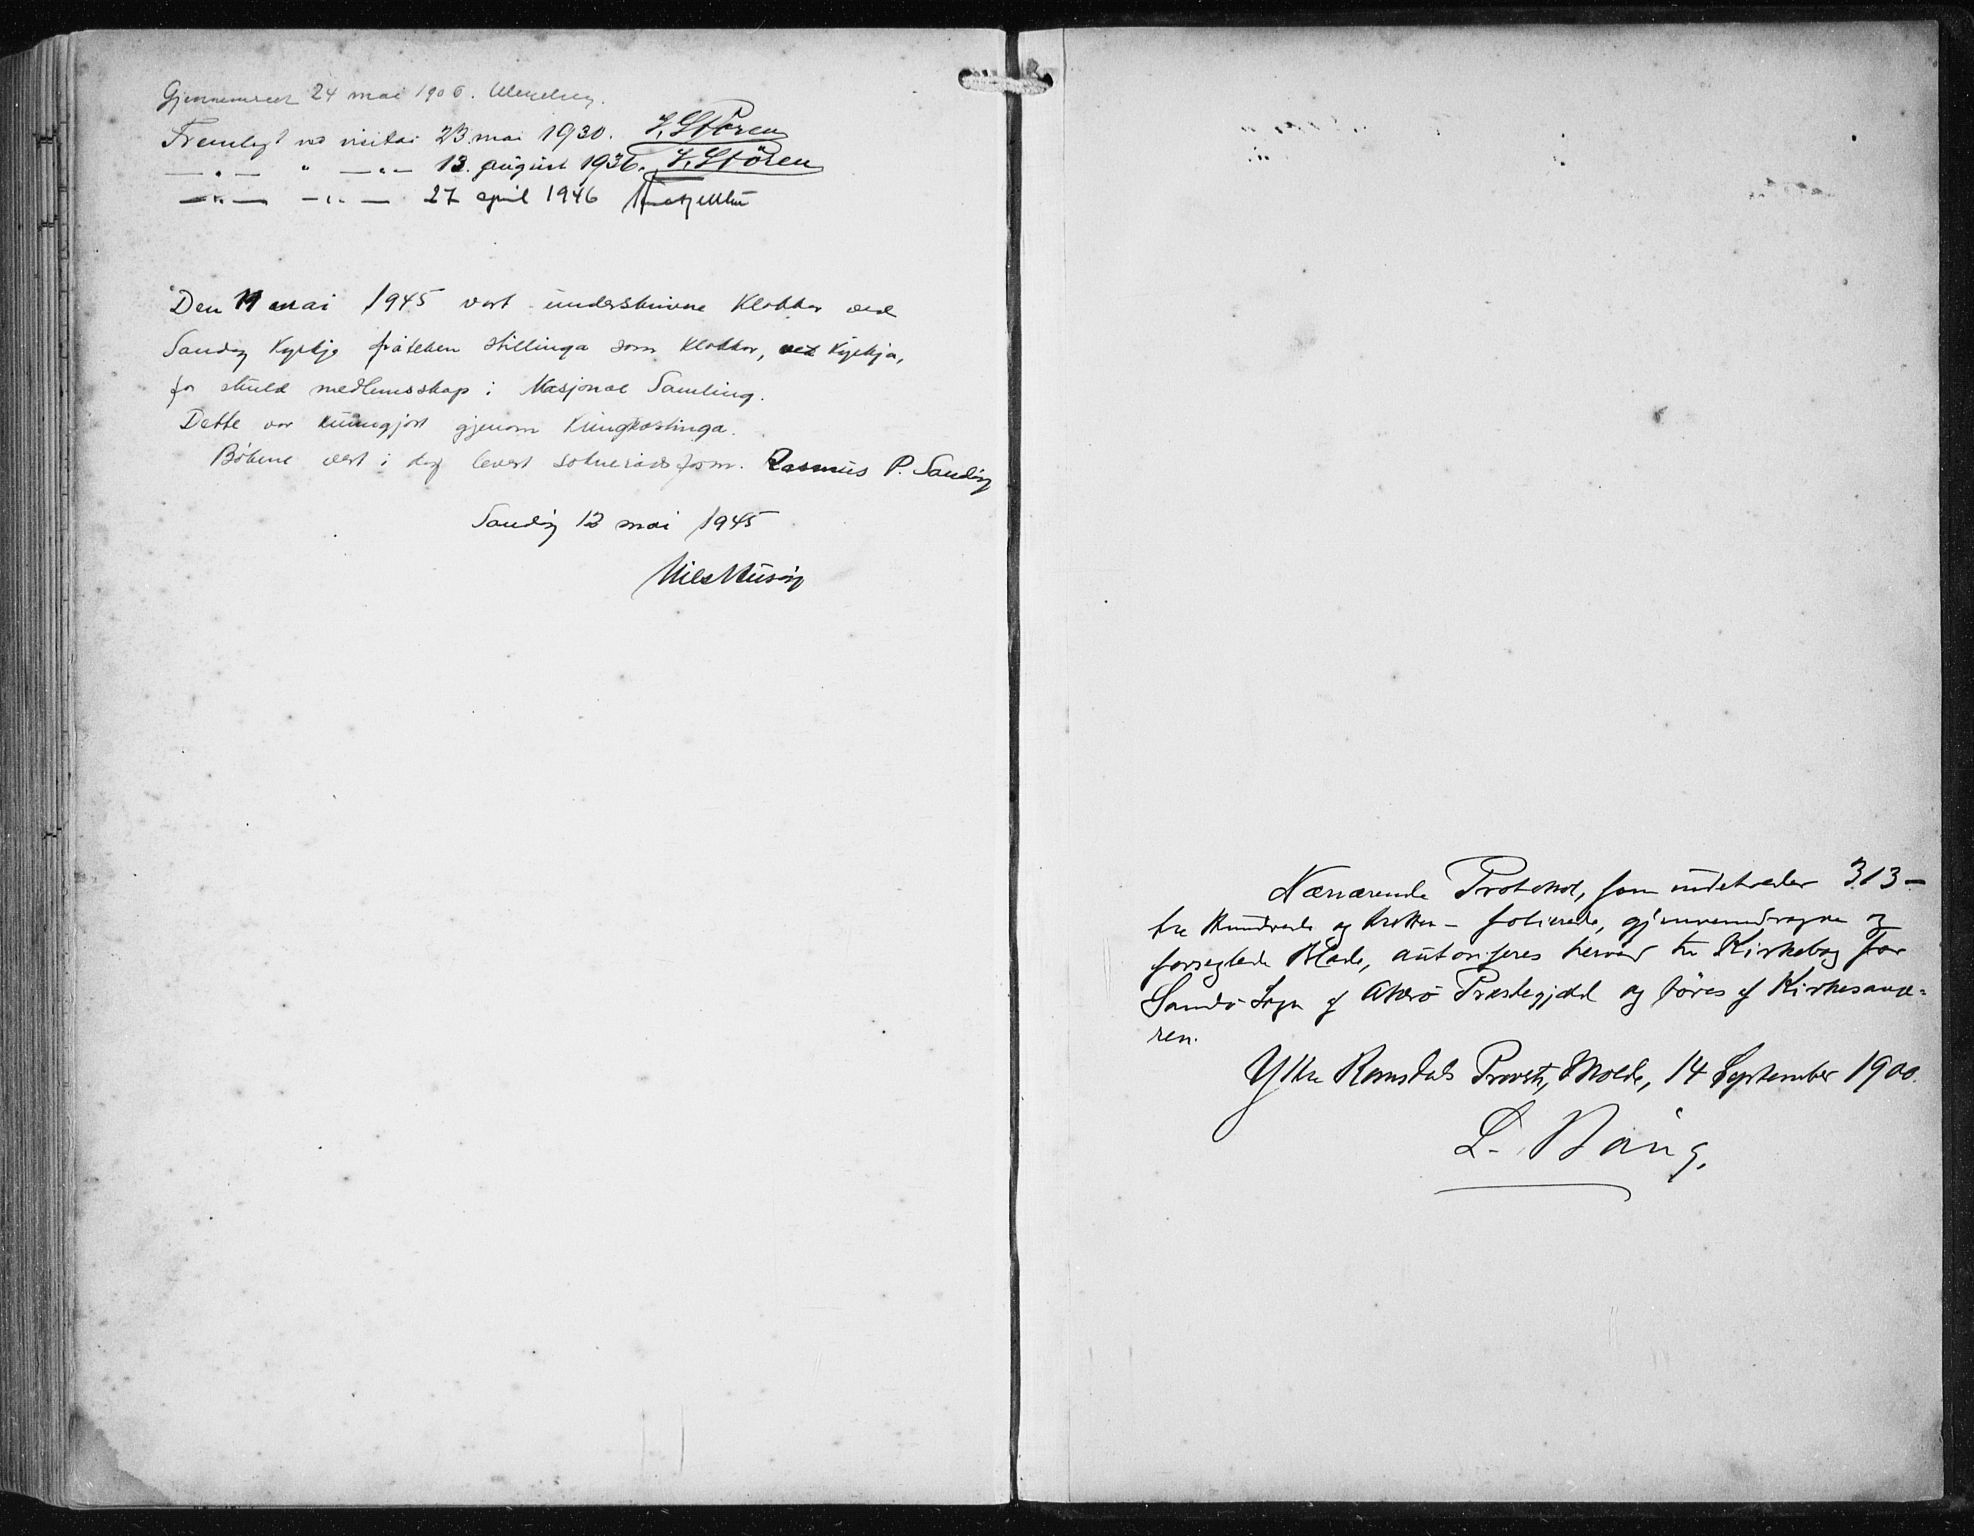 Gjennemseet 24 mai 1906.
Fremlagt ved visitas 23 mai 1930. J. Støren
— " — " — " — 13. august 1936. J. Støren
— " — — " — 27 april 1946
Den 11 mai 1945 vart underskrivne Klokkar ved
Sandøy Kyrkje fråteken stillinga som klokkar, ved Kyrkja,
for skuld medlemsskap i Nasjonal Samling.
Dette var kunngjort gjenom Kringkastinga.
Bøkene vert i dag levert sokneradsform. Rasmus P. Sandøy
Sandøy 12 mai 1945
Nils Musøy
Nærværende Protokol, som indeholder 313 —
tre Hundrede og tretten — folierede, gjennemdragne og
forseglede Blade, autoriseres herved til Kirkebog for
Sandø Sogn af Akerø Præstegjæld og føres af Kirkesange-
ren.
Ytre Romsdals Provsti, Molde, 14 September 1900.